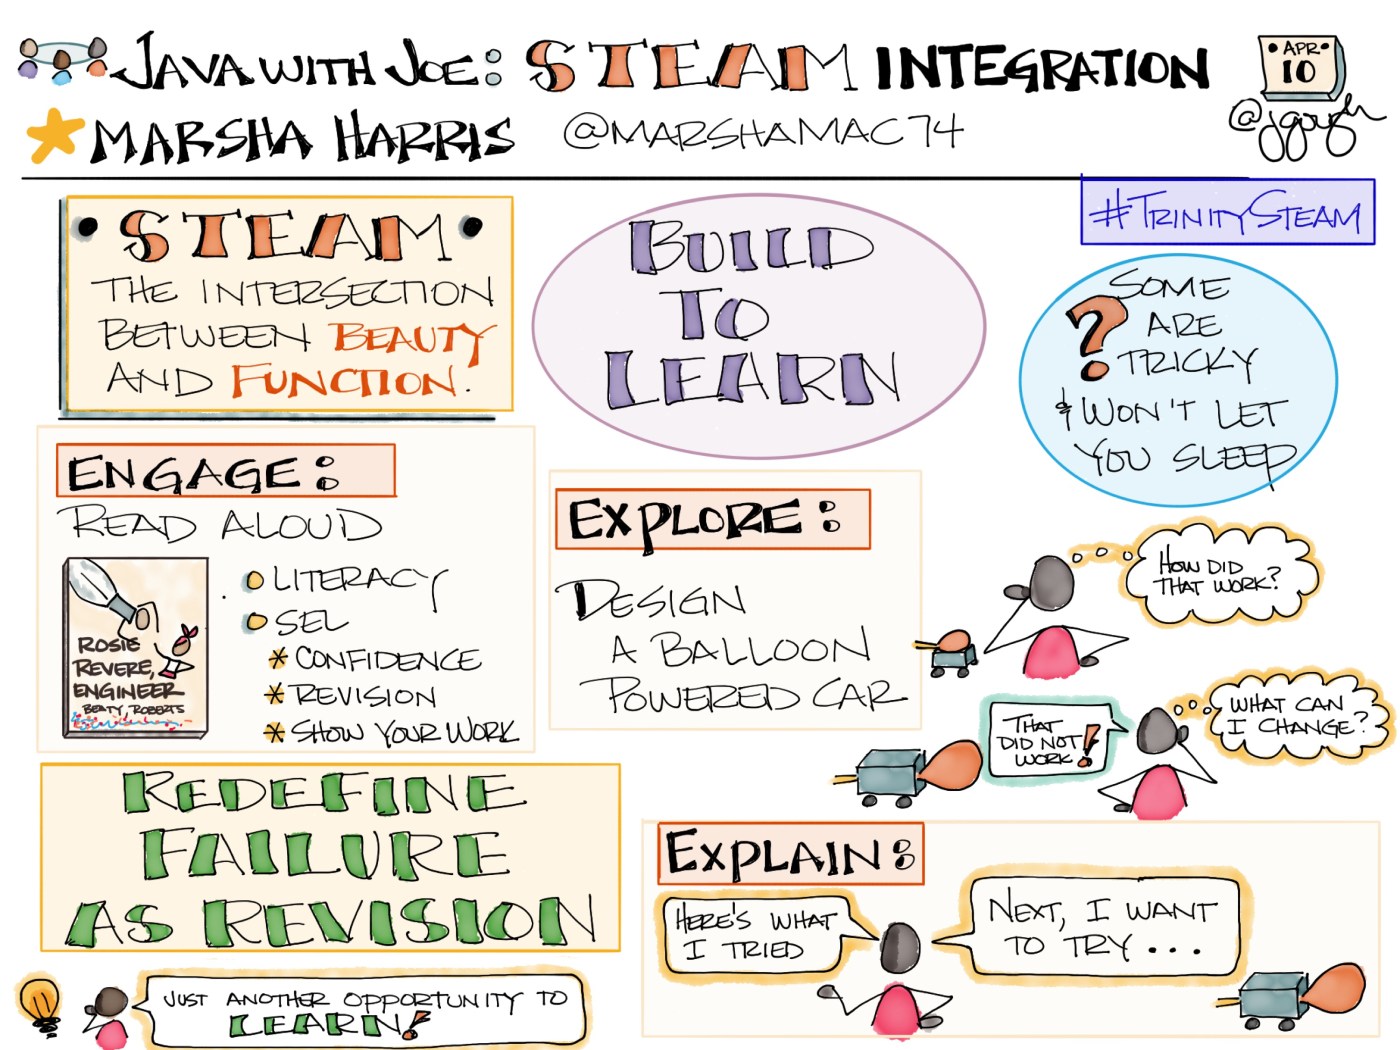 JAVA WITH JOE: STEAM INTEGRATION
APR
10
MARSHA HARRIS @MARSHAMAC74
@jgough
#TRINITYSTEAM
STEAM
THE INTERSECTION
BETWEEN BEAUTY
AND FUNCTION.
BUILD
TO
LEARN
SOME
? ARE
TRICKY
& WON'T LET
YOU SLEEP
ENGAGE:
READ ALOUD
ROSIE
REVERE,
ENGINEER
BEATY, ROBERTS
LITERACY
SEL
* CONFIDENCE
* REVISION
* SHOW YOUR WORK
EXPLORE:
DESIGN
A BALLOON
POWERED CAR
HOW DID
THAT WORK?
THAT
DID NOT
WORK!
WHAT CAN
I CHANGE?
REDEFINE
FAILURE
AS REVISION
JUST ANOTHER OPPORTUNITY TO
LEARN!
EXPLAIN:
HERE'S WHAT
I TRIED
NEXT, I WANT
TO TRY...